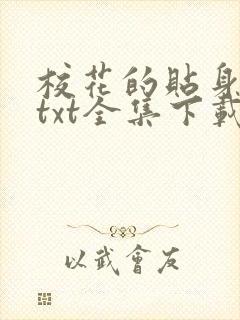 校花的貼身
txt全集下載
以武會友